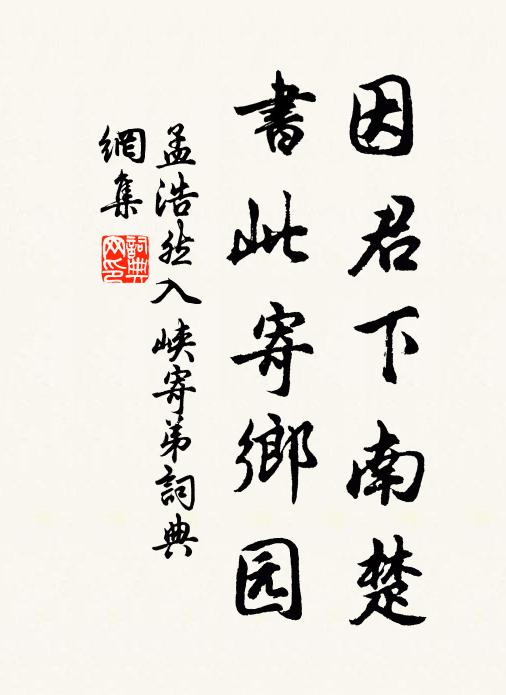 因君下南楚
書此寄鄉园
孟浩然入峽寄弟詞典
網集
詞典
网印